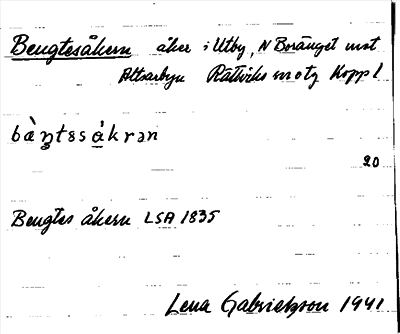 Bengtesåkern åker i Utby, N Boränget mot
Altsarbyn Rättviks sn o tg Kopp l
bàŋtəsåkrən
20
Bengtes åkern LSA 1835
Lena Gabrielsson 1941